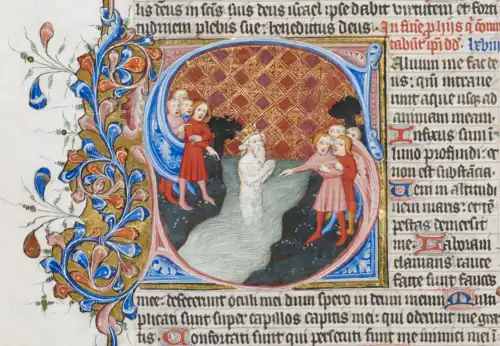 lis deus in scis suis deus israel ipse dabit virtutem et forti
tudinem plebis sue: benedictus deus. In fine p hijs q comu
tabunt
Aluum me fac de
us: qm intraue
runt aque usq ad
animam meam
Infixus sum i
limo profundi: et
non est substācia.
Ueni in altitudi
nem maris: et tē
pestas demersit
me. Laboraui
clamans rauce
facte sunt fauces
mee: defecerunt oculi mei dum spero in deum meum. Multi
plicati sunt super capillos capitis mei: qui oderunt me gra
tis. Confortati sunt qui persecuti sunt me inimici mei